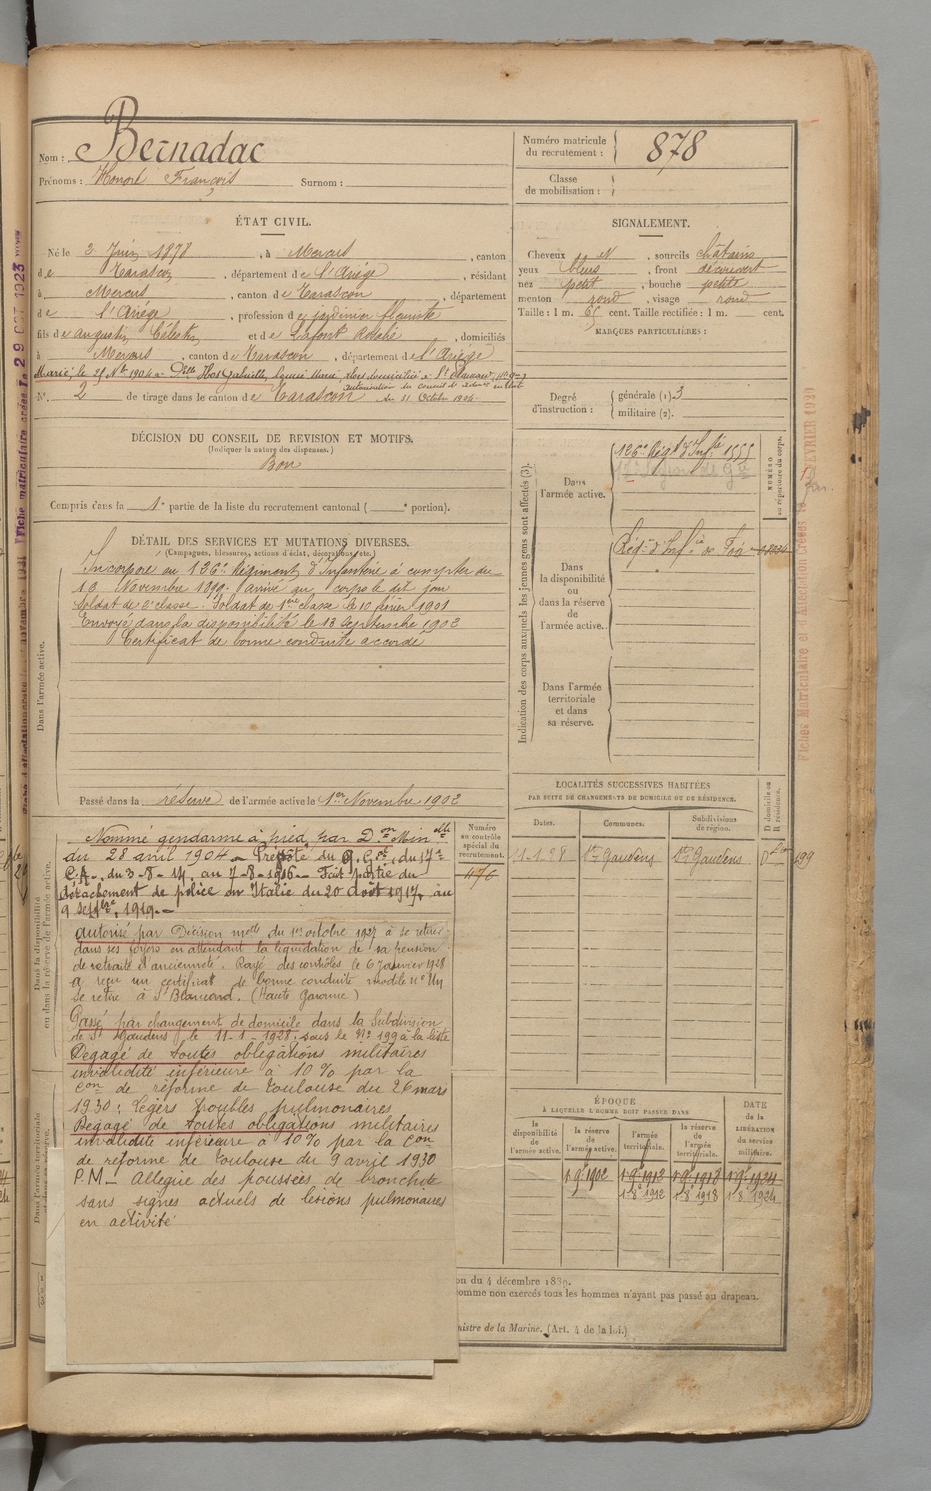 Nom : Bernadac
Prénoms : Honoré François Surnom :
Numéro matricule
du recrutement : 878
Classe
de mobilisation :
ÉTAT CIVIL.
Né le 2 Juin 1878, à Mercus, canton
de Tarascon, département de l'Ariège, résidant
à Mercus, canton de Tarascon, département
de l'Ariège, profession de jardinier fleuriste
fils de Augustin Célestin et de Lafont Rosalie, domiciliés
à Mercus, canton de Tarascon, département de l'Ariège
Marié, le 28 Nbre 1904 à Delle
autorisation du conseil d'adon
du 31 Octobre 1904
N° 2 de tirage dans le canton de Tarascon
SIGNALEMENT.
Cheveux N, sourcils châtains
yeux bleus, front découvert
nez petit, bouche petite
menton rond, visage rond
Taille : 1 m. 65 cent. Taille rectifiée : 1 m. cent.
MARQUES PARTICULIÈRES :
Degré
d'instruction :
générale (1). 3
militaire (2).
DÉCISION DU CONSEIL DE REVISION ET MOTIFS.
(Indiquer la nature des dispenses.)
Bon
Compris dans la 1e partie de la liste du recrutement cantonal ( e portion).
DÉTAIL DES SERVICES ET MUTATIONS DIVERSES.
(Campagnes, blessures, actions d'éclat, décorations, etc.)
Incorporé au 126e Régiment d'Infanterie à compter du
16 Novembre 1899. Arrivé au corps le dit jour
Soldat de 2e classe. Soldat de 1ère classe le 10 février 1901
Envoyé dans la disponibilité le 13 Septembre 1902
Certificat de bonne conduite accordé
Dans l'armée active.
Passé dans la réserve de l'armée active le 1er Novembre 1902
Indication des corps auxquels les jeunes gens sont affectés (3).
Dans
l'armée active.
126e Régt d'Infie 1555
17e Légion de Gie
NUMÉRO
au répertoire du corps.
Dans
la disponibilité
ou
dans la réserve
de
l'armée active.
Régt d'Infie de Foix
Dans l'armée
territoriale
et dans
sa réserve.
Dans la disponibilité
ou dans la réserve de l'armée active.
Nommé gendarme à pied, par Don Minelle
du 28 avril 1904 — Prévôté du Q. Gal, du 17e
C.A., du 3-8-14, au 7-8-1916 — Fait partie du
détachement de police en Italie du 20 Août 1917, au
9 Septbre, 1919. —
Autorisé par Décision melle du 1er octobre 1927 à se retirer
dans ses foyers en attendant la liquidation de sa pension
de retraite d'ancienneté. Rayé des contrôles le 6 Janvier 1928
a reçu un certificat de bonne conduite modèle n° Un
Se retire à St Blancard. (Haute Garonne)
Passé par changement de domicile dans la Subdivision
de St Gaudens le 11-1-1928, sous le N° 199 à la liste
Dégagé de toutes obligations militaires
invalidité inférieure à 10% par la
Con de réforme de Toulouse du 26 mars
1930 : Légers troubles pulmonaires
Dégagé de toutes obligations militaires
invalidité inférieure à 10% par la Con
de réforme de Toulouse du 9 avril 1930
P.M — Allègue des poussées de bronchite
sans signes actuels de lésions pulmonaires
en activité
Numéro
au contrôle
spécial du
recrutement.
476
LOCALITÉS SUCCESSIVES HABITÉES
PAR SUITE DE CHANGEMENTS DE DOMICILE OU DE RÉSIDENCE.
Dates.
Communes.
Subdivisions
de région.
D domicile ou
R résidence.
11-1-28 St Gaudens St Gaudens D 199
ÉPOQUE
À LAQUELLE L'HOMME DOIT PASSER DANS
DATE
de la
LIBÉRATION
du service
militaire.
la
disponibilité
de
l'armée active.
la réserve
de
l'armée active.
l'armée
territoriale.
la réserve
de
l'armée
territoriale.
1-9-1902 1-9-1912 1-9-1918 1-9-1924
1-8-1912 1-8-1918 1-8-1924
on du 4 décembre 1889.
omme non exercés tous les hommes n'ayant pas passé au drapeau.
nistre de la Marine. (Art. 4 de la loi.)